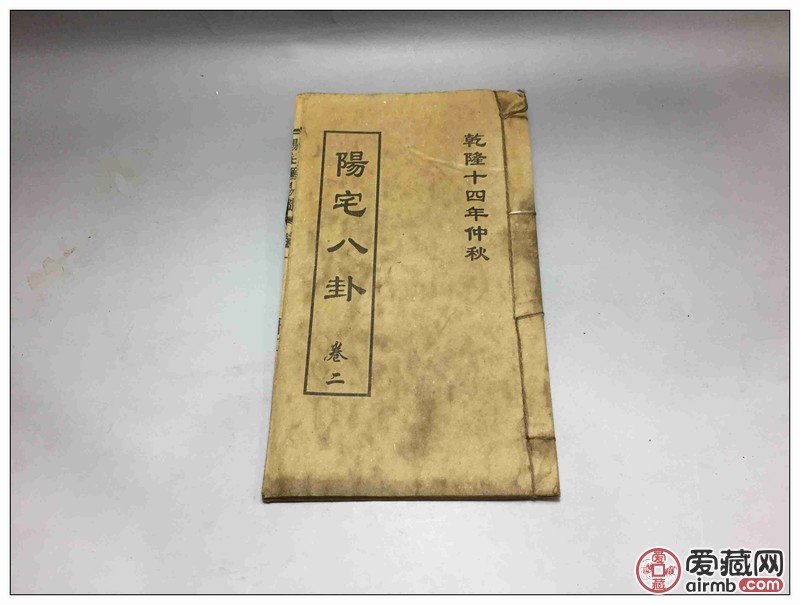 乾隆十四年仲秋
陽宅八卦
卷二
爱藏网
airmb.com